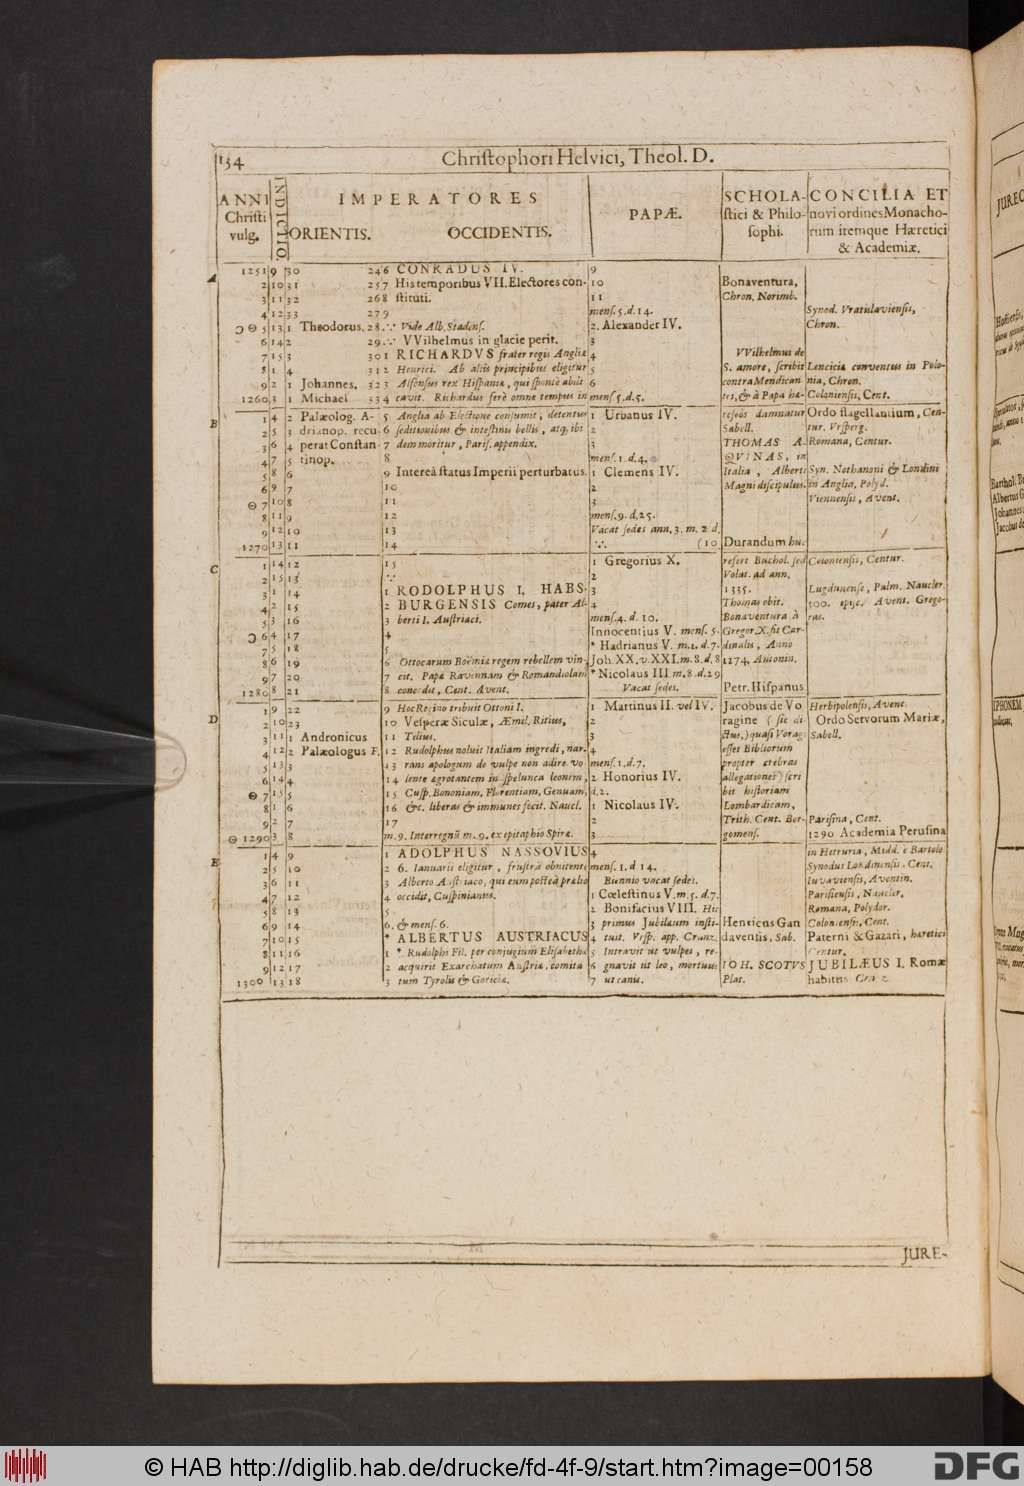 154 Christophori Helvici, Theol. D.
ANNI Christi vulg.
INDICTIO.
IMPERATORES
ORIENTIS. OCCIDENTIS.
PAPÆ.
SCHOLA-
stici & Philo-
sophi.
CONCILIA ET
novi ordines Monacho-
rum itemque Hæretici
& Academiæ.
A
1251 9 30 24 6 CONRADUS IV. 9
2 10 31 25 7 His temporibus VII. Electores con- 10 Bonaventura,
3 11 32 26 8 stituti. 11 Chron. Norimb.
4 12 33 27 9 mens. 5. d. 14. Synod. Vratislaviensis,
5 13 1 Theodorus. 28. Vide Alb. Stadens. 2. Alexander IV. Chron.
6 14 2 29. VVilhelmus in glacie perit. 3
7 15 3 30 1 RICHARDVS frater regis Angliæ 4 VVilhelmus de
8 1 4 31 2 Henrici. Ab aliis principibus eligitur 5 S. amore, scribit Lenciciæ conventus in Polo-
9 2 1 Johannes. 32 3 Alfonsus rex Hispaniæ, qui sponte abdi- 6 contra Mendican nia, Chron.
1260 3 1 Michael 33 4 cavit. Richardus ferè omne tempus in mens. 5. d. 5. tes, & à Papa hæ- Coloniensis, Cent.
B
1 4 2 Palæolog. A- 5 Anglia ab Electione consumit, detentus 1 Urbanus IV. reseôs damnatur Ordo flagellantium, Cen-
2 5 3 drianop. recu- 6 seditionibus & intestinis bellis, atq; ibi 2 Sabell. tur. Vrsperg.
3 6 4 perat Constan- 7 dem moritur, Paris. appendix. 3 THOMAS A- Romana, Centur.
4 7 5 tinop. 8 mens. 1. d. 4. QVINAS, in
5 8 6 9 Intereà status Imperii perturbatus. 1 Clemens IV. Italia, Alberti Syn. Nothanoni & Londini
6 9 7 10 2 Magni discipulus. in Anglia, Polyd.
7 10 8 11 3 Viennensis, Avent.
8 11 9 12 mens. 9. d. 25.
9 12 10 13 Vacat sedes ann. 3. m. 2 d.
1270 13 11 14 (10 Durandum huc
C
1 14 12 15 1 Gregorius X. refert Buchol. sed Coloniensis, Centur.
2 15 13 2 Volat. ad ann.
3 1 14 1 RODOLPHUS I. HABS- 3 1335. Lugdunense, Palm. Naucler.
4 2 15 2 BURGENSIS Comes, pater Al- 4 Thomas obit. 500. episc. Avent. Grego-
5 3 16 3 berti I. Austriaci. mens. 4. d. 10. Bonaventura à ras.
6 4 17 4 Innocentius V. mens. 5. Gregor. X. fit Car-
7 5 18 5 * Hadrianus V. m. 1. d. 7. dinalis, Anno
8 6 19 6 Ottocarum Boëmiæ regem rebellem vin- Joh. XX. v. XXI. m. 8. d. 8 1274, Antonin.
9 7 20 7 cit. Papæ Ravennam & Romandiolam * Nicolaus III m. 8. d. 29
1280 8 21 8 concedit, Cent. Avent. Vacat sedes. Petr. Hispanus
D
1 9 22 9 Hoc Regino tribuit Ottoni I. 1 Martinus II. vel IV. Jacobus de Vo Herbipolensis, Avent.
2 10 23 10 Vesperæ Siculæ, Æmil. Ritius, 2 ragine (sic di- Ordo Servorum Mariæ,
3 11 1 Andronicus 11 Tilius. 3 ctus, quasi Vorag- Sabell.
4 12 2 Palæologus F. 12 Rudolphus noluit Italiam ingredi, nar- 4 esset Bibliorum
5 13 3 13 rans apologum de vulpe non adire vo mens. 1. d. 7. propter crebras
6 14 4 14 lente ægrotantem in spelunca leonem, 2 Honorius IV. allegationes) scri
7 15 5 15 Cusp. Bononiam, Florentiam, Genuam, d. 2. bit historiam
8 1 6 16 &c. liberas & immunes fecit. Naucl. 1 Nicolaus IV. Lombardicam,
9 2 7 17 2 Trith. Cent. Ber- Parisina, Cent.
1290 3 8 m. 9. Interregnū m. 9. ex epitaphio Spiræ. 3 gomens. 1290 Academia Perusina
E
1 4 9 1 ADOLPHUS NASSOVIUS 4 in Hetruria, Midd. e Bartolo
2 5 10 2 6. Ianuarii eligitur, frustrà obnitente mens. 1. d 14. Synodus Londinensis, Cent.
3 6 11 3 Alberto Austriaco, qui eum posteà prælio Biennio vacat sedes. Iuvaviensis, Aventin.
4 7 12 4 occidit, Cuspinianus. 1 Cœlestinus V. m. 5. d. 7. Parisiensis, Naucler.
5 8 13 5 2 Bonifacius VIII. Hic Romana, Polydor.
6 9 14 6. & mens. 6. 3 primus Jubilæum insti- Henricus Gan Coloniensis, Cent.
7 10 15 * ALBERTUS AUSTRIACUS 4 tuit. Vrsp. app. Cranz. davensis, Sab. Paterni & Gazari, hæretici
8 11 16 1 *. Rudolphi Fil. per conjugium Elisabethæ 5 Intravit ut vulpes, re- Centur.
9 12 17 2 acquirit Exarchatum Austriæ, comita 6 gnavit ut leo, mortuus IOH. SCOTVS JUBILÆUS I. Romæ
1300 13 18 3 tum Tyrolis & Goriciæ. 7 ut canis. Plat. habitus Cranz.
JURE-
© HAB http://diglib.hab.de/drucke/fd-4f-9/start.htm?image=00158
DFG